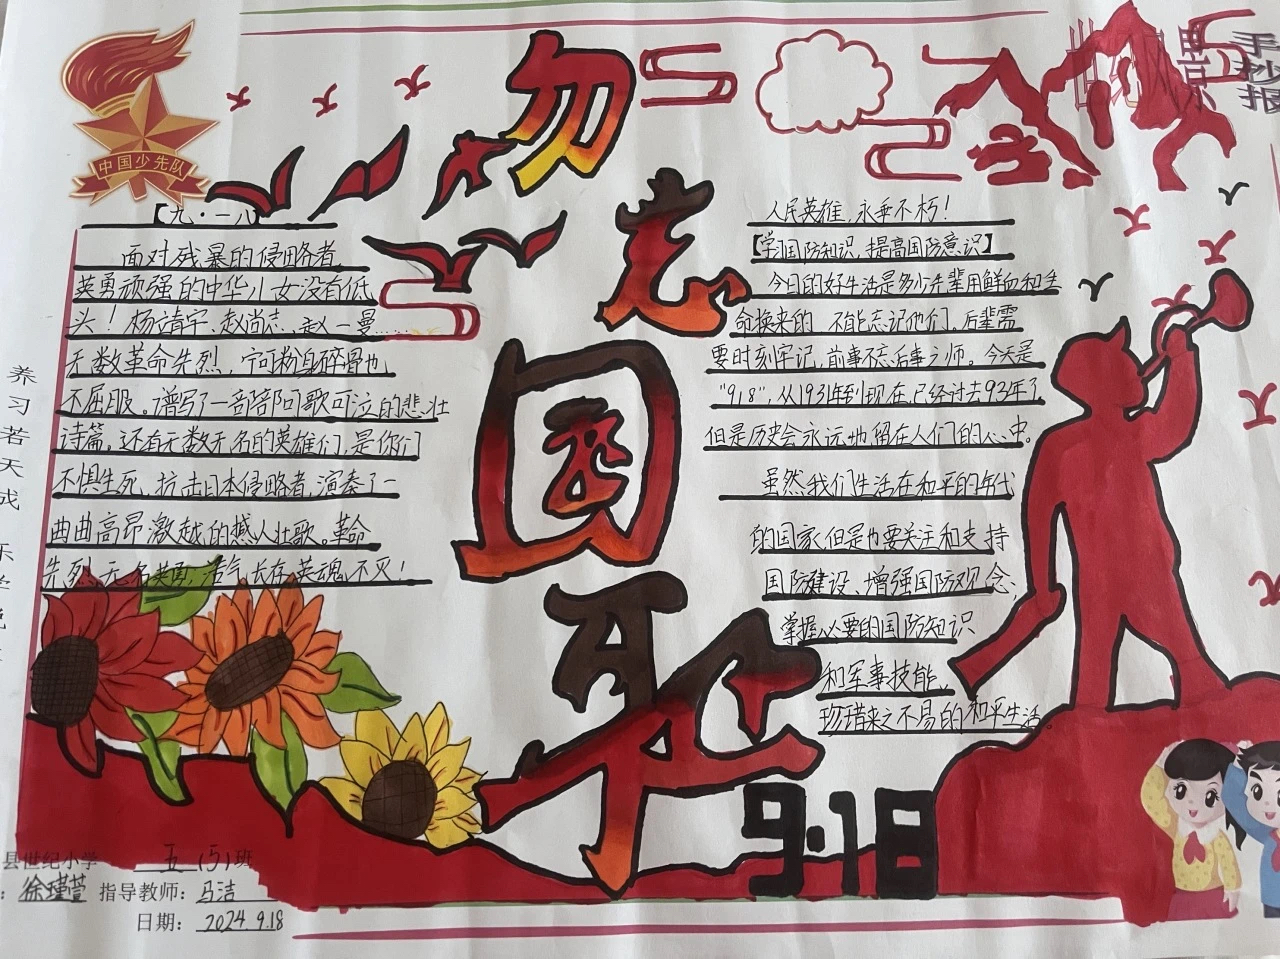 中国少先队
手抄报
勿忘国耻
9·18
【九·一八】
面对残暴的侵略者,
英勇顽强的中华儿女没有低
头!杨靖宇、赵尚志、赵一曼……
无数革命先烈,宁可粉身碎骨也
不屈服。谱写了一部部可歌可泣的悲壮
诗篇。还有无数无名的英雄们,是你们
不惧生死,抗击日本侵略者,演奏了一
曲曲高昂激越的撼人壮歌。革命
先烈、无名英勇,浩气长存,英魂不灭!
人民英雄,永垂不朽!
【学习国防知识,提高国防意识】
今日的好生活是多少先辈用鲜血和生
命换来的,不能忘记他们,后辈需
要时刻牢记,前事不忘后事之师。今天是
"918",从1931年到现在,已经过去93年了,
但是历史会永远地留在人们的心中。
虽然我们生活在和平的年代
的国家但是也要关注和支持
国防建设、增强国防观念;
掌握必要的国防知识
和军事技能,
珍惜来之不易的和平生活
养习若天成
县世纪小学 五(5)班
徐瑾萱 指导教师:马洁
日期:2024.9.18